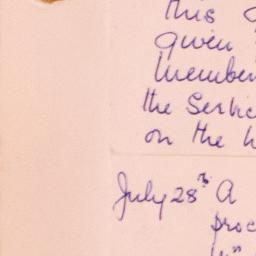 This
given
member
the Servic
on the h
July 28th A
proc